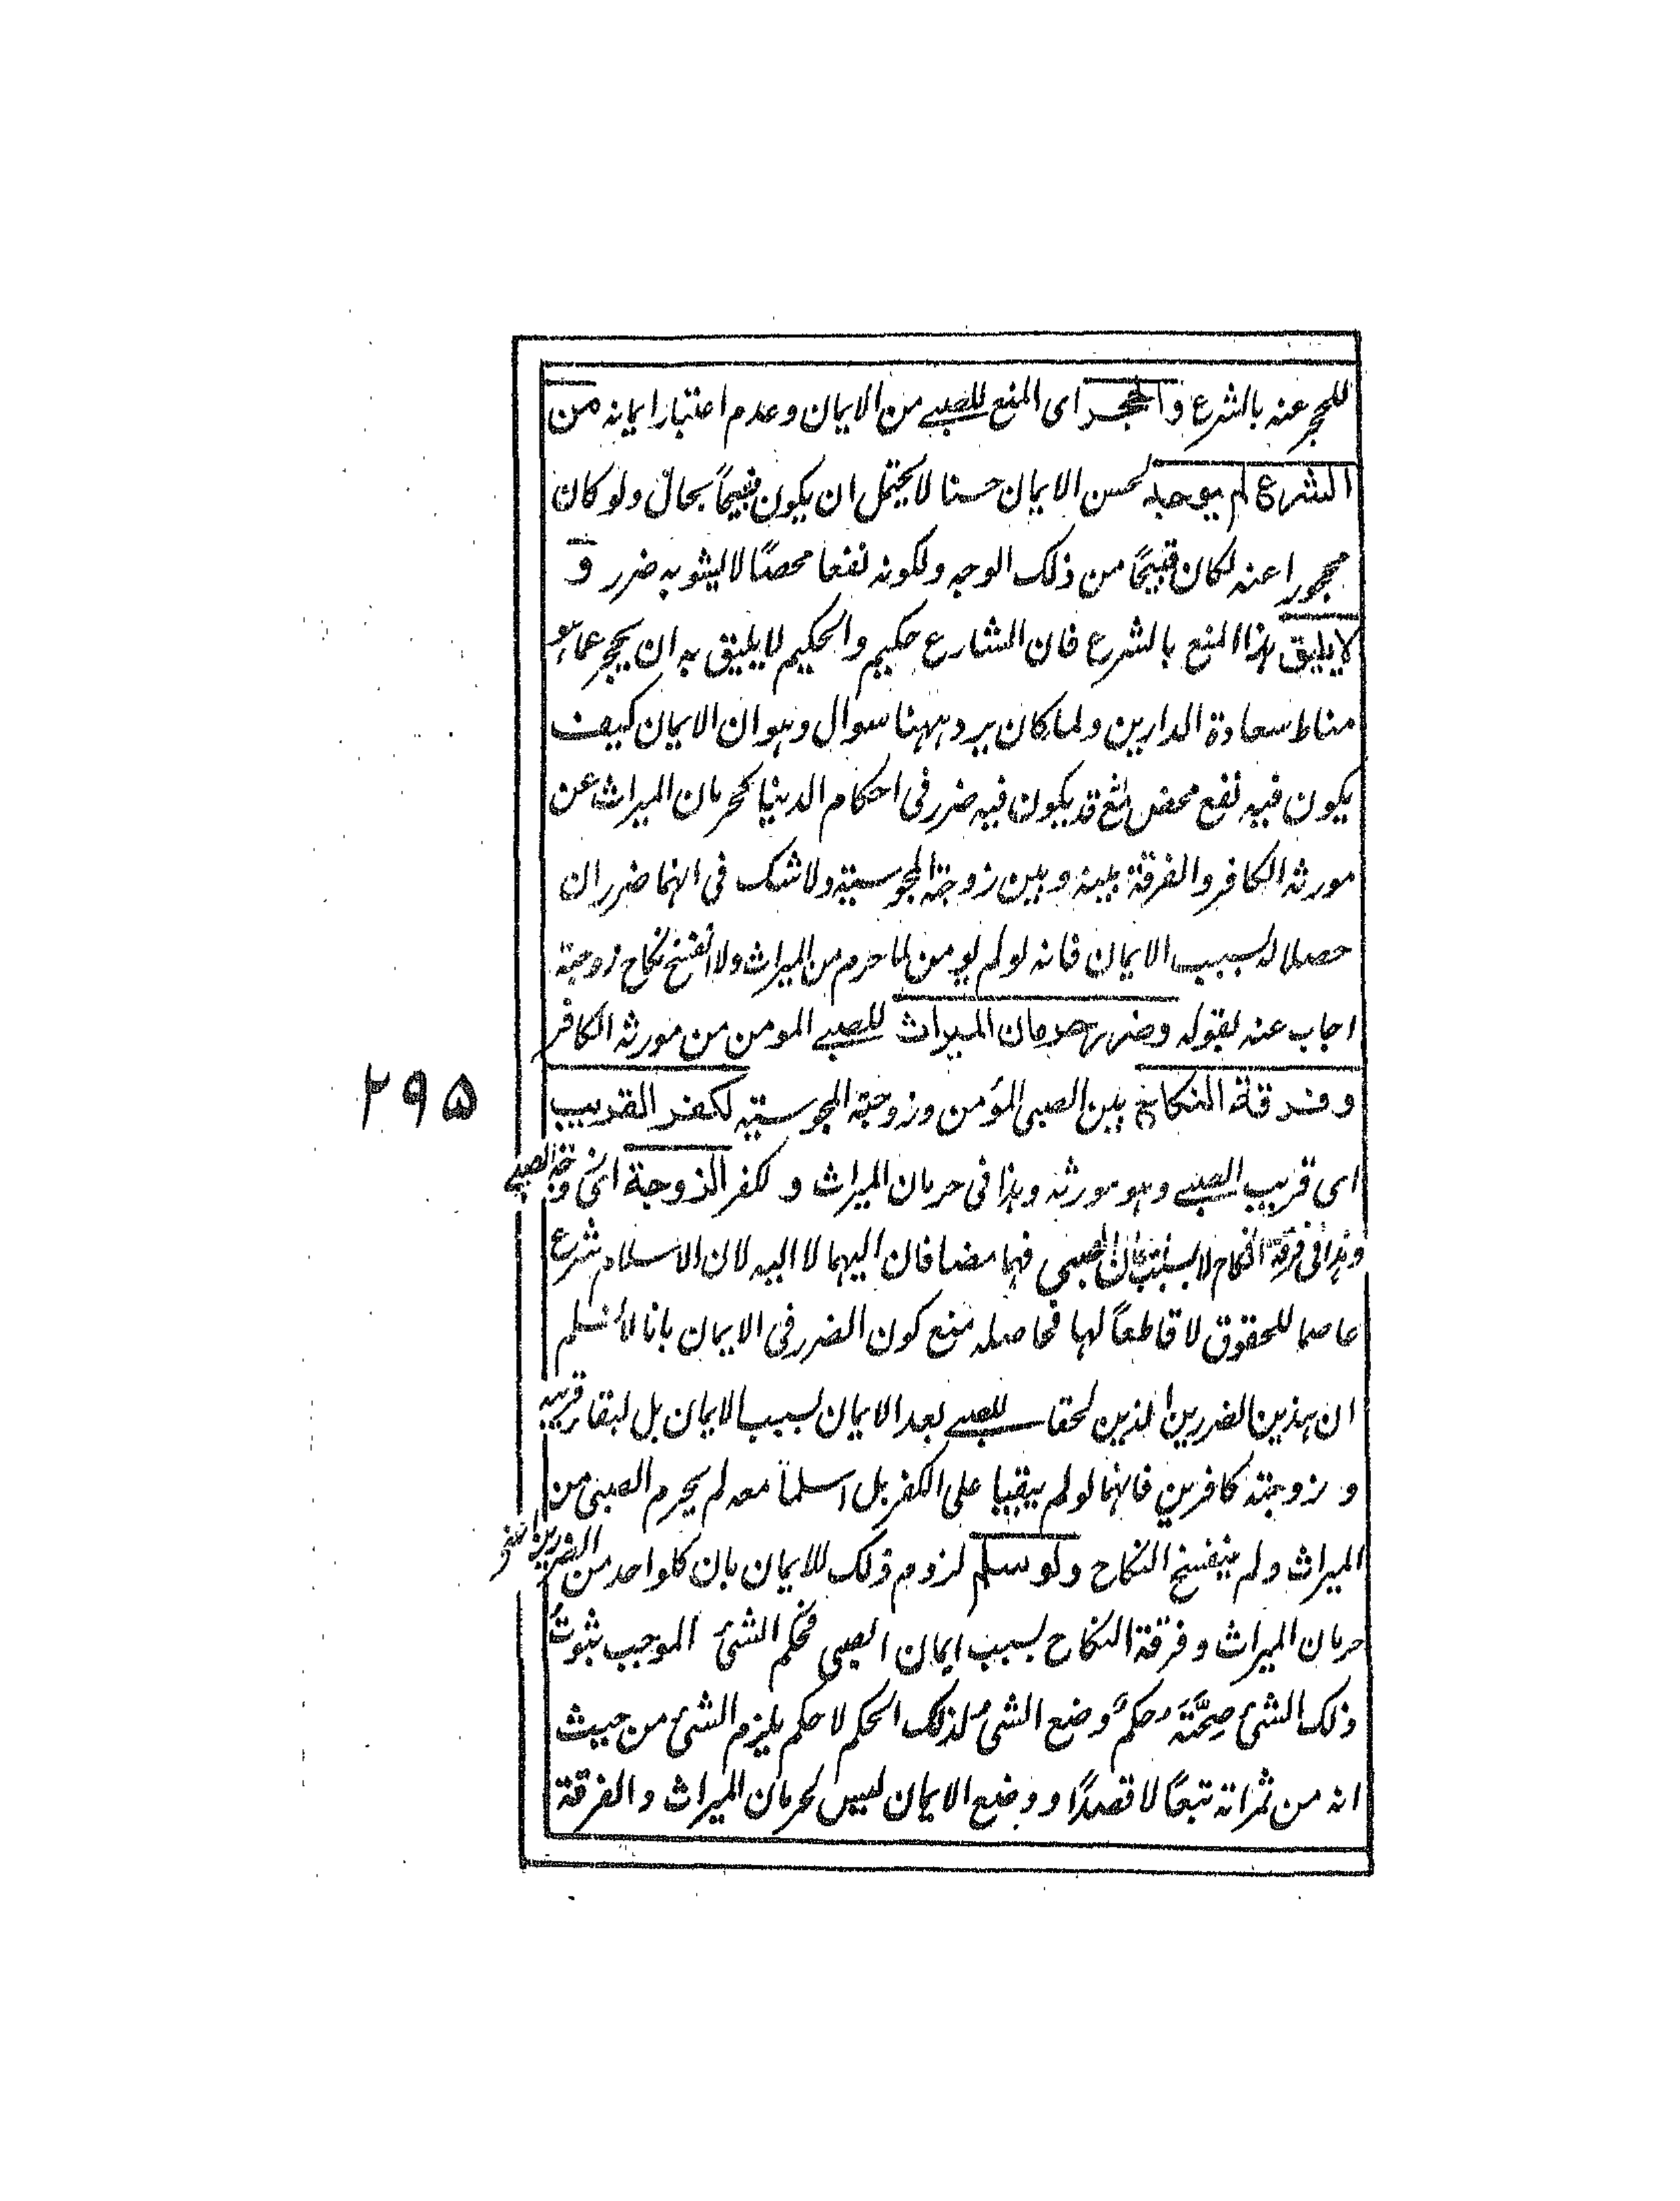 للحجر عنه بالشرع والحجر اى المنع للصبى من الايمان وعدم اعتبار ايمانه من
الشرع لم يوجد لحسن الايمان حسنا لا يحتمل ان يكون قبيحاً بحال ولو كان
محجورا عنه لكان قبيحًا من ذلك الوجه ولكونه نفعا محضًا لا يشوبه ضرر و
لا يليق هذا المنع بالشرع فان الشارع حكيم والحكيم لا يليق به ان يحجر عما هو
مناط سعادة الدارين ولما كان يرد ههنا سوال وهو ان الايمان كيف
يكون فيه نفع محض مع قد يكون فيه ضرر فى احكام الدنيا كحرمان الميراث عن
مورثه الكافر والفرقة بينه وبين زوجته المجوسية ولا شك فى انهما ضرران
حصلا له بسبب الايمان فانه لو لم يومن لما حرم من الميراث ولا انفسخ نكاح زوجته
اجاب عنه بقوله وضرر حرمان الميراث للصبى المومن من مورثه الكافر
وفرقة النكاح بين الصبى المؤمن وزوجته المجوسية لكفر القريب
۲۹۵
اى قريب الصبى وهو مورثه وهذا فى حرمان الميراث و لكفر الزوجة اى زوجة الصبى
وهذا فى فرقة النكاح لا بسبب ايمان الصبى فهما مضافان اليهما لا اليه لان الاسلام شرع
عاصما للحقوق لا قاطعاً لها فحاصله منع كون الضرر فى الايمان بانا لا نسلم
ان هذين الضررين الذين لحقا للصبى بعد الايمان بسبب الايمان بل لبقاء قريبه
و زوجته كافرين فانهما لو لم يبقيا على الكفر بل اسلما معه لم يحرم الصبى من
الميراث ولم ينفسخ النكاح ولو سلم لزوم ذلك للايمان بان كلا واحد من الضررين اعنى
حرمان الميراث وفرقة النكاح بسبب ايمان الصبى فحكم الشئ الموجب ثبوت
ذلك الشئ صحَّتَه حكم وضع الشئ لذلك الحكم لا حكم يلزم الشئ من حيث
انه من ثمراته تبعًا لا قصدًا ووضع الايمان ليس لحرمان الميراث والفرقة